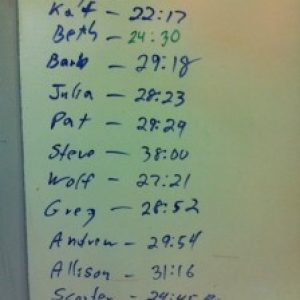 Kat - 22:17
Beth - 24:30
Barb - 29:18
Julia - 28:23
Pat - 29:29
Steve - 38:00
Wolf - 27:21
Greg - 28:52
Andrew - 29:54
Allison - 31:16